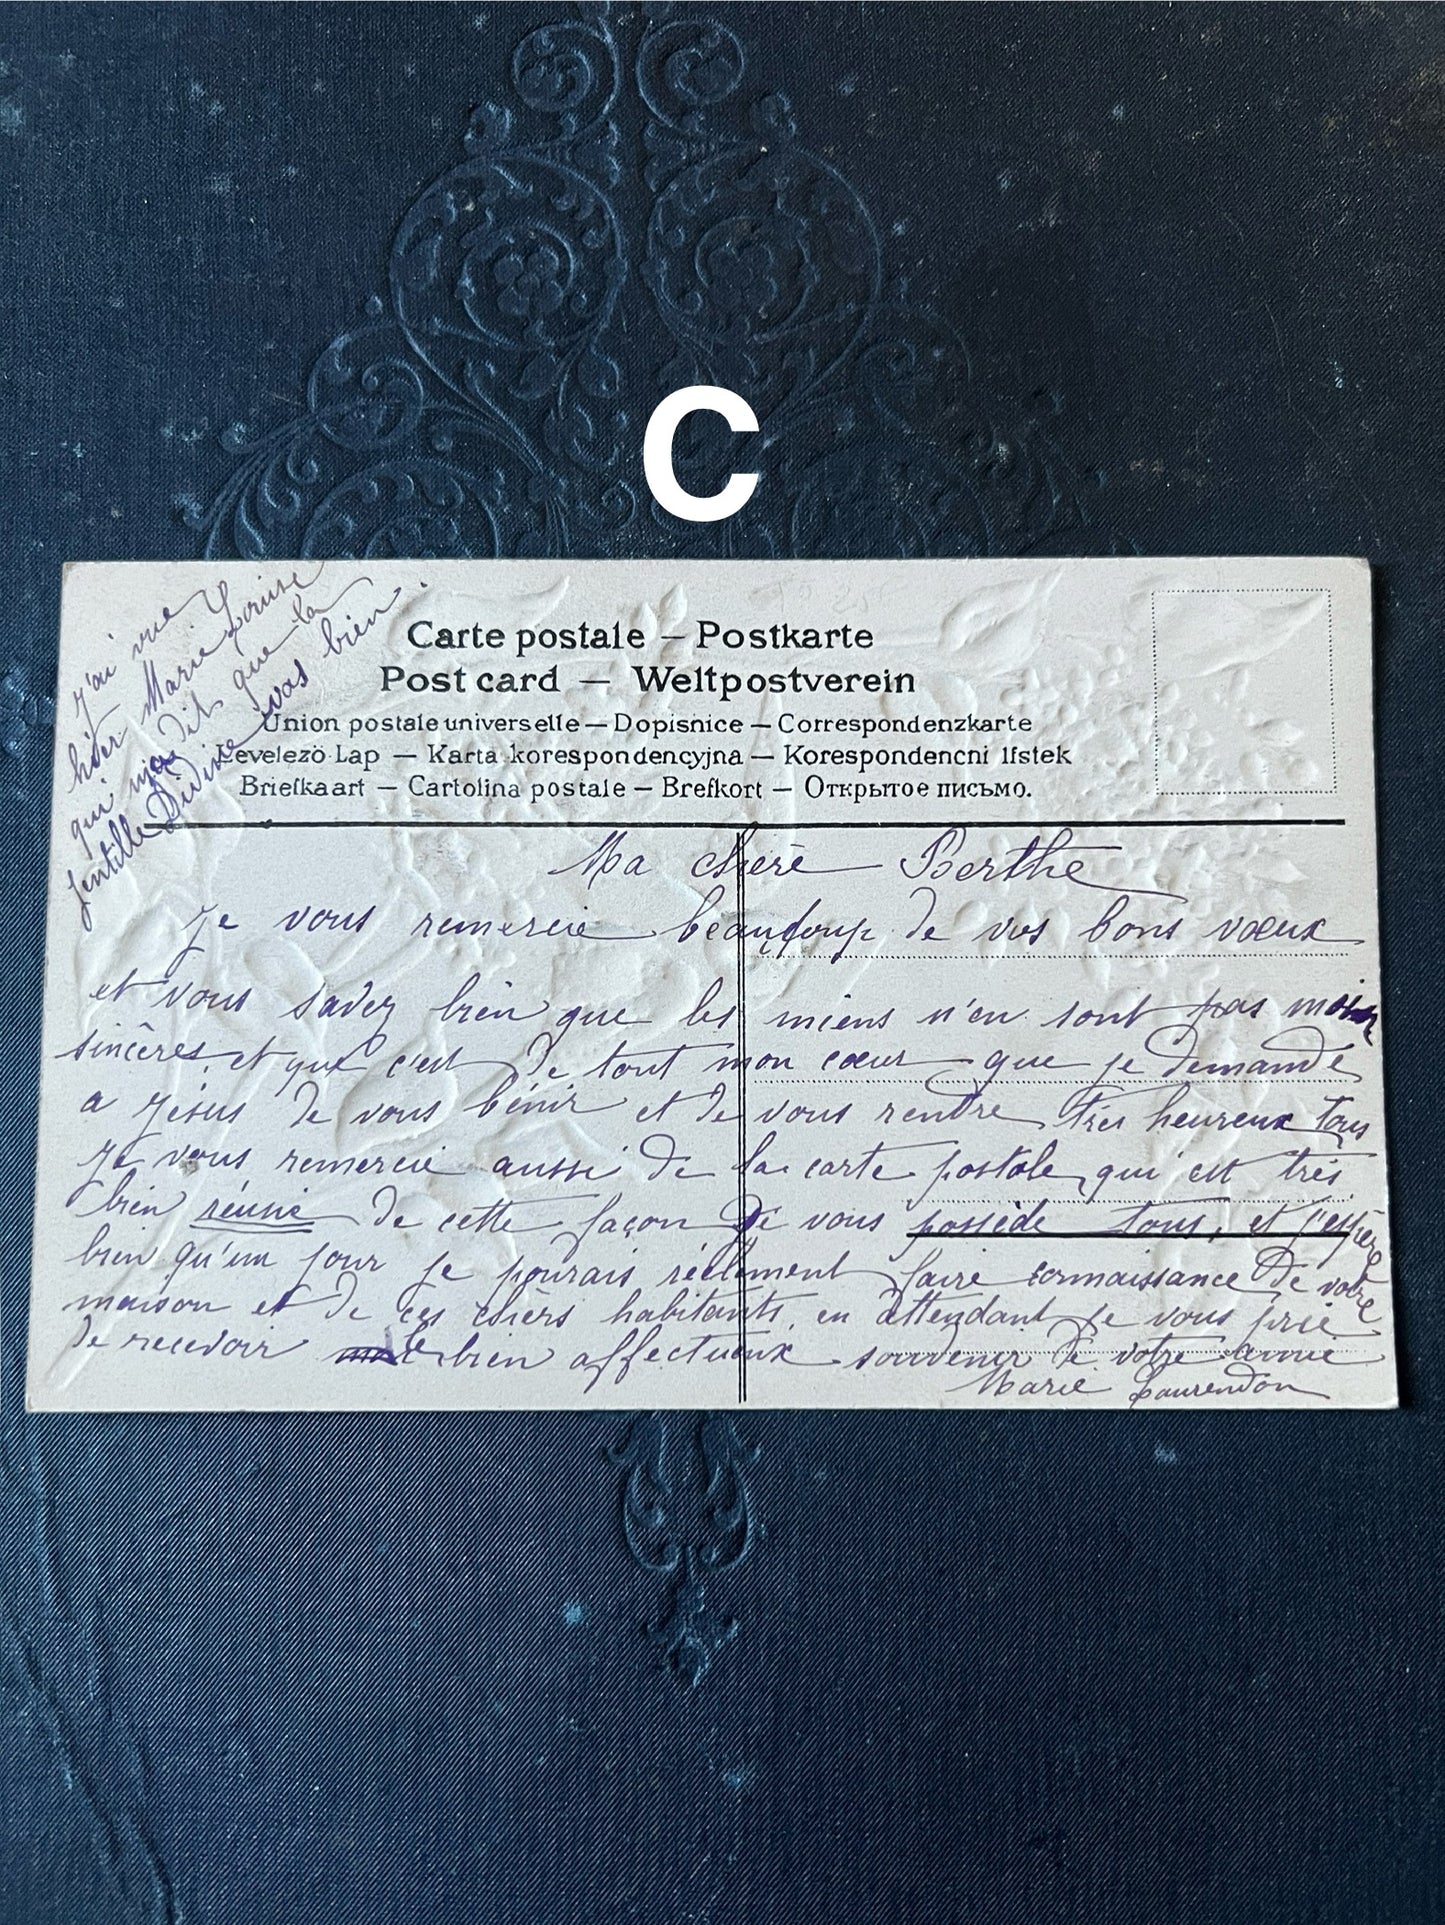 C
j'ai vue
hier Marie Louise
qui m'a dit que la
gentille Divine vas bien.
Carte postale — Postkarte
Post card — Weltpostverein
Union postale universelle — Dopisnice — Correspondenzkarte
Levelező Lap — Karta korespondencyjna — Korespondencni lístek
Briefkaart — Cartolina postale — Brefkort — Открытое письмо.
Ma chère Berthe
Je vous remercie beaucoup de vos bons vœux
et vous savez bien que les miens n'en sont pas moins
sincères, et que c'est de tout mon cœur que je demande
a Jésus de vous bénir et de vous rendre très heureux tous
Je vous remercie aussi de la carte postale, qui est très
bien réusie de cette façon je vous possède tous, et j'espère
bien qu'un jour je pourais réellement faire connaissance de votre
maison et de ces chèrs habitants, en attendant je vous prie
de recevoir le bien affectueux souvenir de votre amie
Marie Laurendon